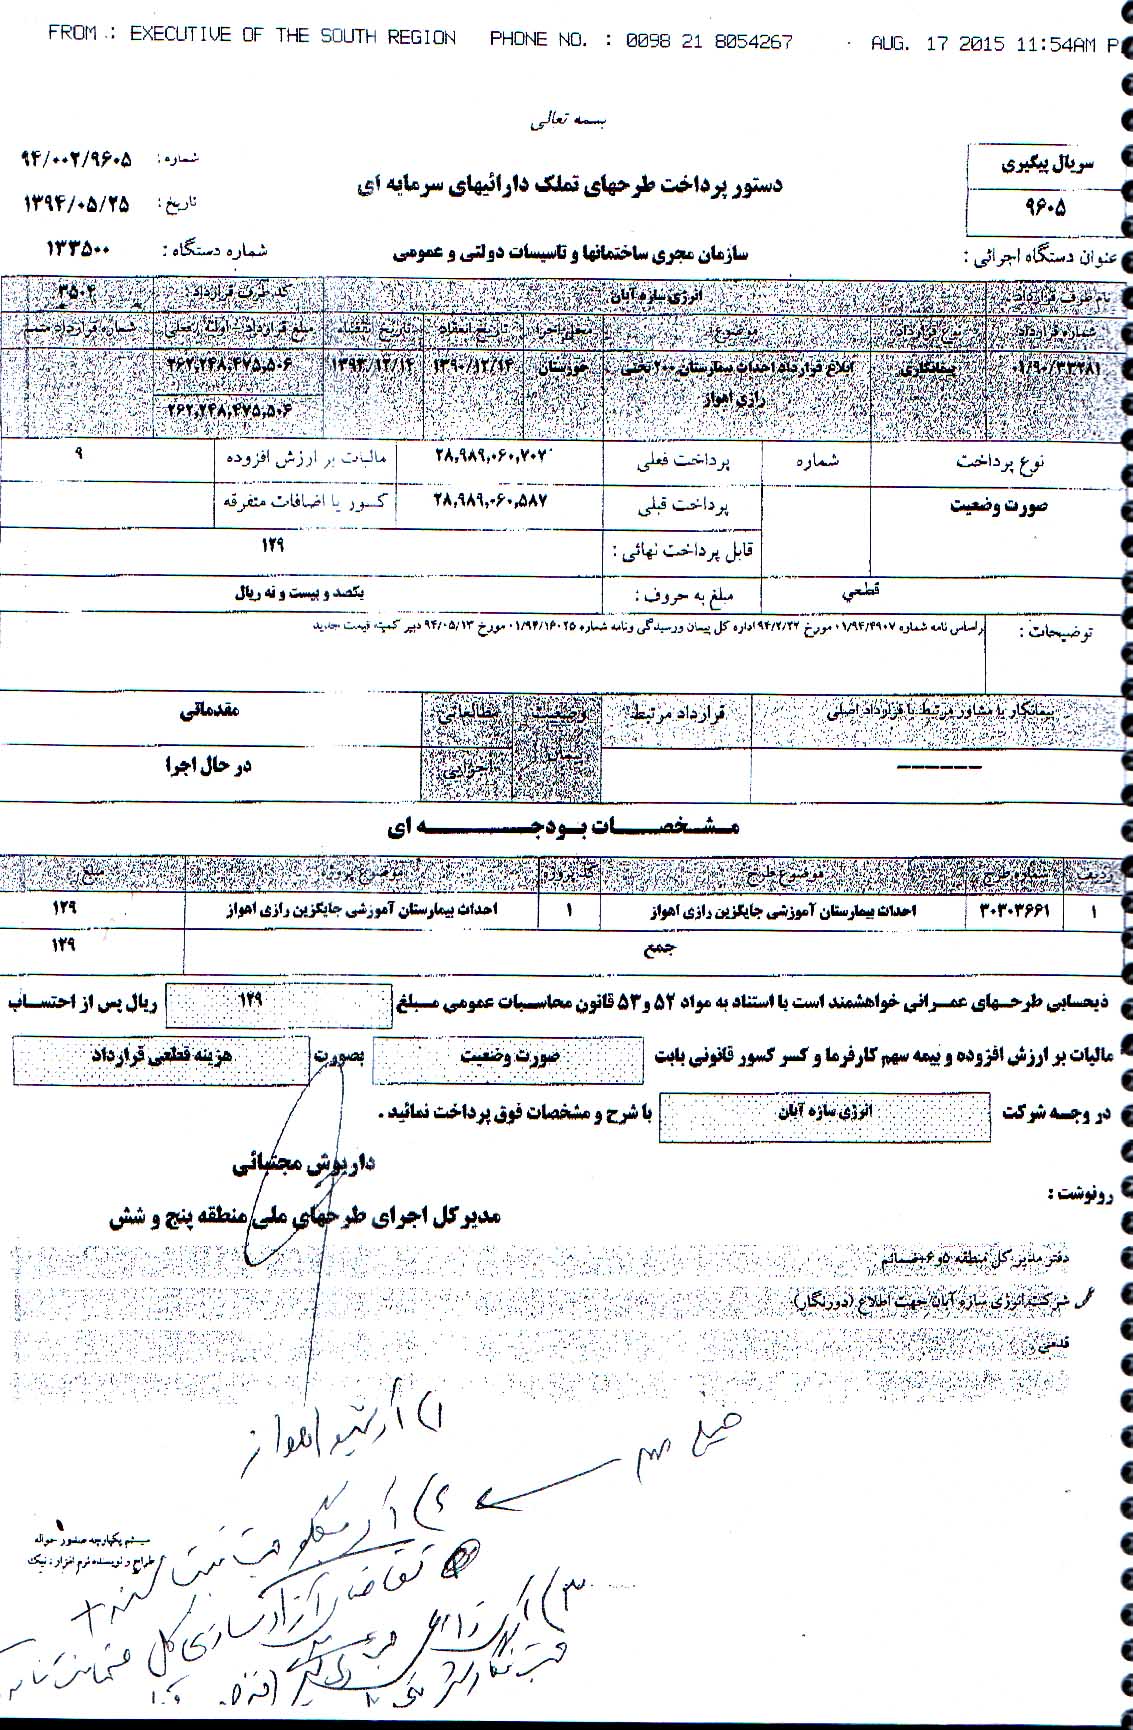 FROM : EXECUTIVE OF THE SOUTH REGION PHONE NO. : 0098 21 8054267 AUG. 17 2015 11:54AM P
بسمه تعالی
سریال پیگیری
۹۶۰۵
دستور پرداخت طرحهای تملک دارائیهای سرمایه ای
شماره : ۹۴/۰۰۲/۹۶۰۵
تاریخ : ۱۳۹۴/۰۵/۲۵
عنوان دستگاه اجرائی : سازمان مجری ساختمانها و تاسیسات دولتی و عمومی شماره دستگاه : ۱۳۳۵۰۰
نام طرف قرارداد : انرژی سازه آبان کد طرف قرارداد : ۳۵۰۴
شماره قرارداد نوع قرارداد موضوع محل اجرا تاریخ انعقاد تاریخ خاتمه مبلغ قرارداد - اولیه / فعلی شماره قرارداد متمم
۰۱/۹۰/۳۳۲۸۱ پیمانکاری ابلاغ قرارداد احداث بیمارستان ۲۰۰ تختی خوزستان ۱۳۹۰/۱۲/۱۴ ۱۳۹۳/۱۲/۱۴ ۲۶۲,۲۴۸,۴۷۵,۵۰۶
رازی اهواز ۲۶۲,۲۴۸,۴۷۵,۵۰۶
نوع پرداخت شماره پرداخت فعلی ۲۸,۹۸۹,۰۶۰,۷۰۷ مالیات بر ارزش افزوده ۹
صورت وضعیت پرداخت قبلی ۲۸,۹۸۹,۰۶۰,۵۸۷ کسور یا اضافات متفرقه
قابل پرداخت نهائی : ۱۲۹
قطعي مبلغ به حروف : یکصد و بیست و نه ریال
توضیحات : براساس نامه شماره ۰۱/۹۴/۴۹۰۷ مورخ ۹۴/۲/۲۲ اداره کل پیمان ورسیدگی ونامه شماره ۰۱/۹۴/۱۶۰۲۵ مورخ ۹۴/۰۵/۱۳ دبیر کمیته قیمت جدید
پیمانکار یا مشاور مرتبط با قرارداد اصلی قرارداد مرتبط وضعیت مطالعاتی مقدماتی
------ پیمان اجرایی در حال اجرا
مشخصات بودجه ای
ردیف شماره طرح موضوع طرح کد پروژه موضوع پروژه مبلغ
۱ ۳۰۳۰۳۶۶۱ احداث بیمارستان آموزشی جایگزین رازی اهواز ۱ احداث بیمارستان آموزشی جایگزین رازی اهواز ۱۲۹
جمع ۱۲۹
ذیحسابی طرحهای عمرانی خواهشمند است با استناد به مواد ۵۲ و ۵۳ قانون محاسبات عمومی مبلغ ۱۲۹ ریال پس از احتساب
مالیات بر ارزش افزوده و بیمه سهم کارفرما و کسر کسور قانونی بابت صورت وضعیت بصورت هزینه قطعی قرارداد
در وجه شرکت انرژی سازه آبان با شرح و مشخصات فوق پرداخت نمائید .
داریوش مجتبائی
مدیر کل اجرای طرحهای ملی منطقه پنج و شش
رونوشت :
دفتر مدیر کل منطقه ۵و۶
شرکت انرژی سازه آبان جهت اطلاع (دورنگار)
۱) آرشیو اهواز
خیلی مهم
سیستم یکپارچه صدور حواله
طراح و نویسنده نرم افزار : نیک